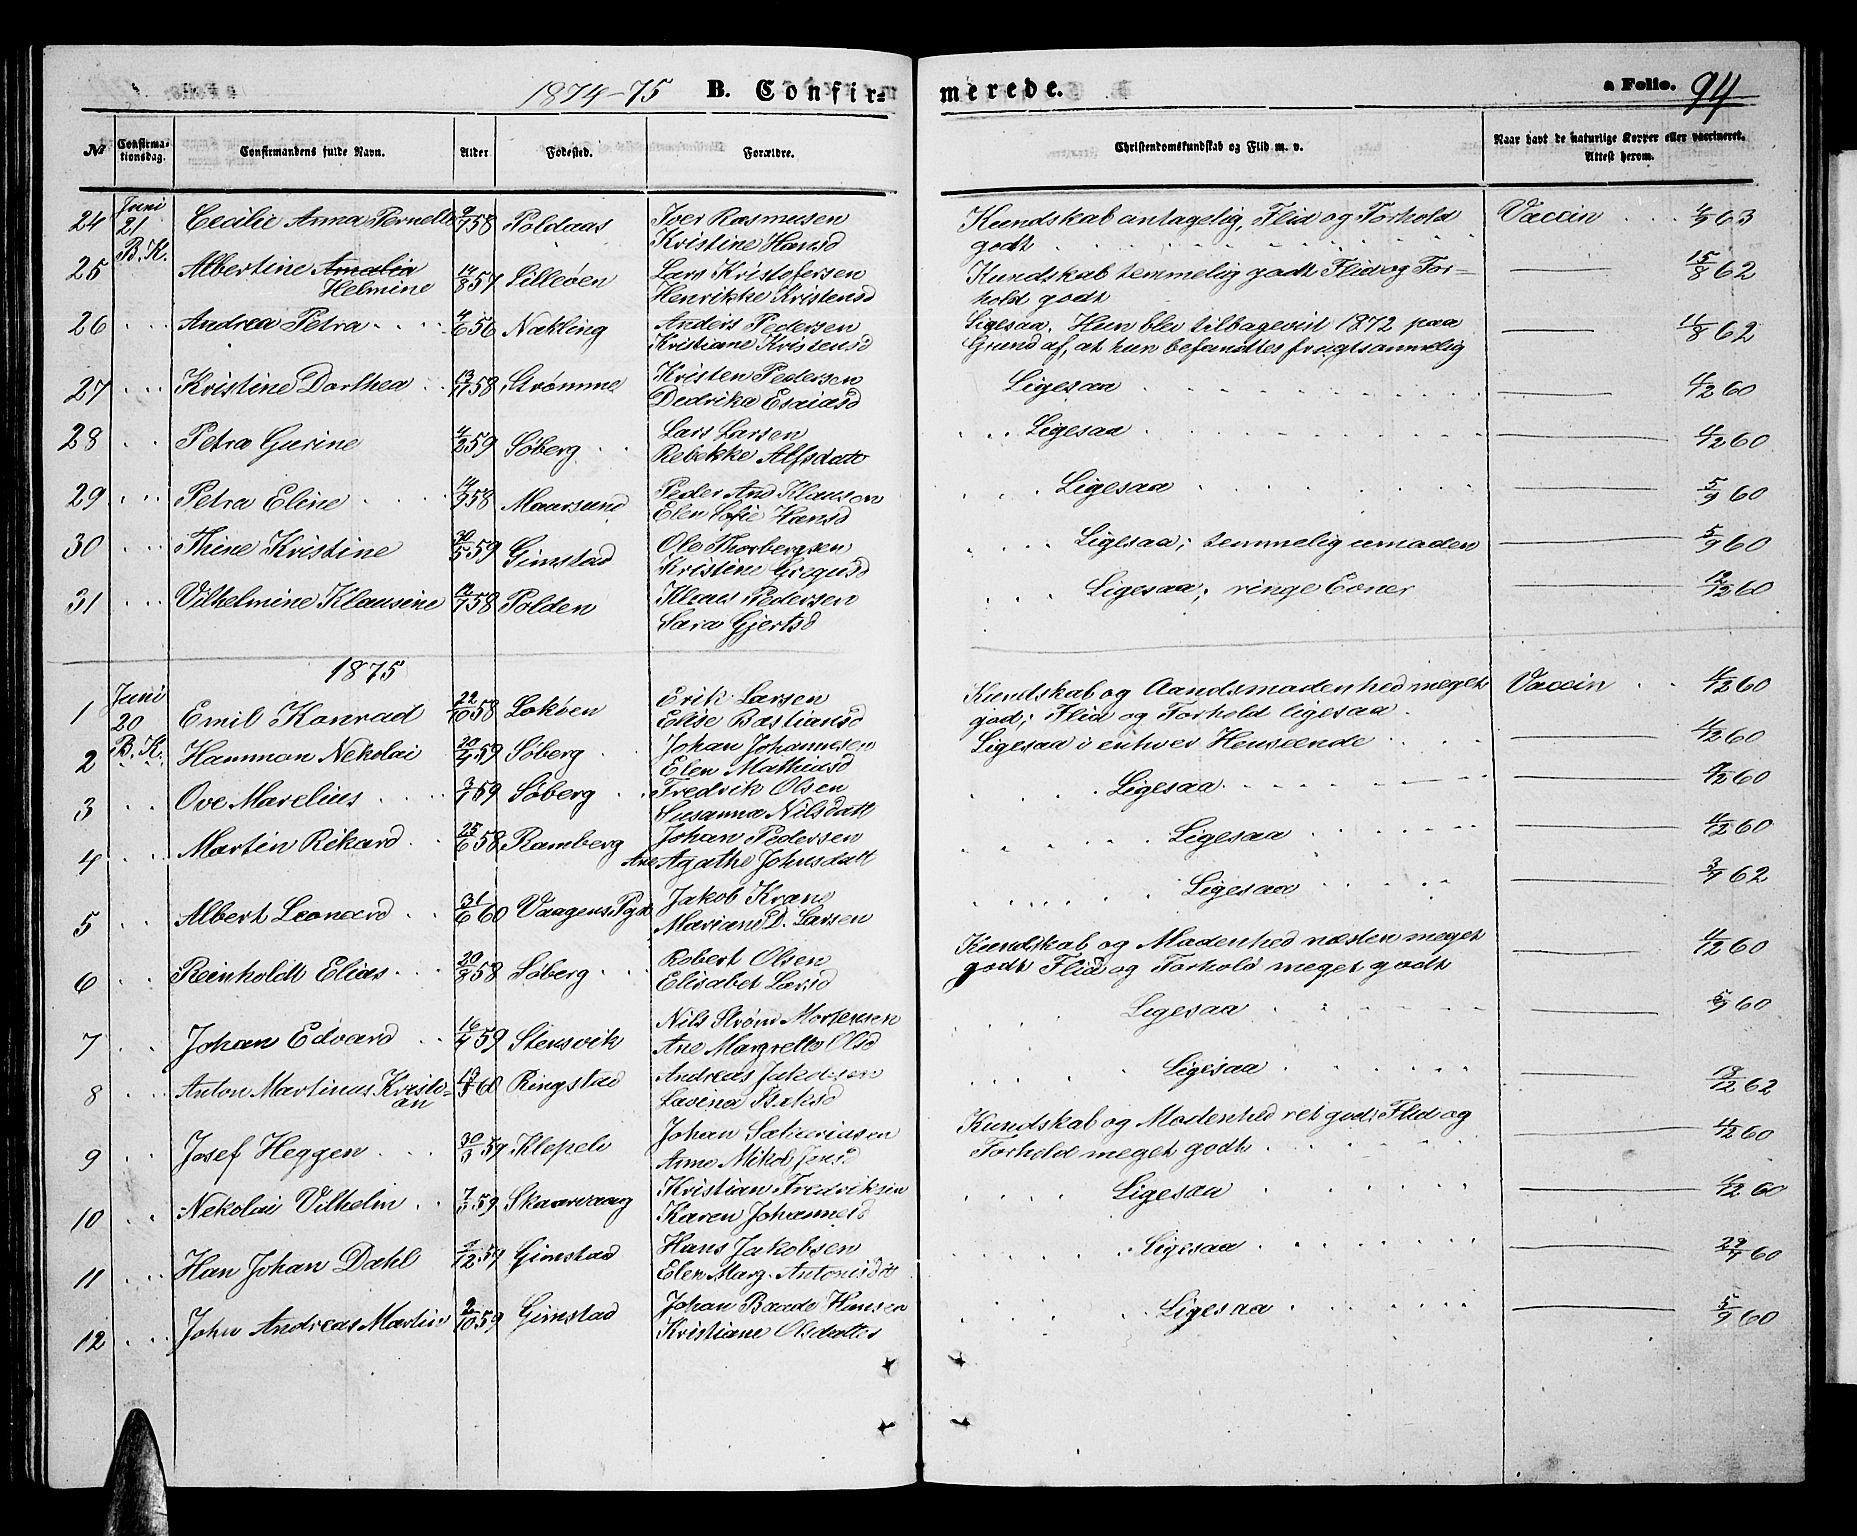 1874-75 B. Confirmerede. a Folio. 94
No Confirmationsdag. Confirmandens fulde Navn. Alder Fødested. Forældre. Christendomskundskab og Flid m. v. Naar havt de naturlige Kopper eller vaccineret. Attest herom.
24 Juni 21 Cecilie Anna Pernelle 58 Poldaas Iver Rasmusen Kundskab antagelig, Flid og Forhold Vaccin 63
B. K. Kristine Hansd godt
25 Albertine Amalia 14/8 57 Lilleøen Lars Kristofersen Kundskab temmelig godt Flid og For- 15/8 62
Helmine Henrikke Kristensd hold godt
26 Andrea Petra 56 Nækling Anders Pedersen Ligesaa. Hun blev tilbagevist 1872 paa 11/8 62
Kristiane Kristensd Grund af, at hun befandtes frugtsommelig
27 Kristine Dorthea 58 Strømme Kristen Pedersen Ligesaa 4/12 60
Dedrika Esaiasd
28 Petra Gurine 4/2 59 Søberg Lars Larsen Ligesaa 4/12 60
Rebekke Alfsdatt
29 Petra Eline 58 Maursund Peder And Klausen Ligesaa 5/9 60
Elen Sofie Hansd
30 Thine Kristine 30/5 59 Gimstad Ole Thorbergsen Ligesaa; temmelig umoden 5/9 60
Kristine Gregusd
31 Vilhelmine Klausine 58 Polden Klaus Pedersen Ligesaa; ringe Evner 12/12 60
Sara Gjertsd
1875
1 Juni 20 Emil Konrad 22/10 58 Lokøen Erik Larsen Kundskab og Aandsmodenhed meget Vaccin 4/12 60
B. K. Elise Bastiansd god; Flid og Forhold ligesaa.
2 Hammon Nekolai 20/4 59 Søberg Johan Johannesen Ligesaa i enhver Henseende 4/12 60
Elen Mathiasd
3 Ove Marelius 59 Søberg Fredrik Olsen Ligesaa 60
Susanna Nilsdatt
4 Martin Rikard 25/6 58 Ramberg Johan Pedersen Ligesaa 4/12 60
Ane Agathe Johnsdatt
5 Albert Leonard 31/6 60 Vaagens Pgd Jakob Krane Ligesaa 62
Mariane D. Larsen
6 Reinholdt Elias 58 Søberg Robert Olsen Kundskab og Modenhed næsten meget 4/12 60
Elisabet Larsd godt Flid og Forhold meget godt
7 Johan Edvard 16/4 59 Stensvik Nils Strøm Mortensen Ligesaa 5/9 60
Ane Margrette Olsd
8 Anton Martinus Kristi- 60 Ringstad Andreas Jakobsen Ligesaa 18/12 62
an Lavina Isaksd
9 Josef Heggen 30/3 59 Klepeli Johan Sakariasen Kundskab og Modenhed ret god; Flid og 4/12 60
Anne Mikol Jensd Forhold meget godt
10 Nekolai Vilhelm 59 Skaarvaag Kristian Fredriksen Ligesaa 4/12 60
Karen Johannesd
11 Han Johan Dahl 59 Gimstad Hans Jakobsen Ligesaa 60
Elen Marg. Antonisdtt
12 John Andreas Martin 2/10 59 Gimstad Johan Baade Hansen Ligesaa 5/9 60
Kristiane Olsdatter